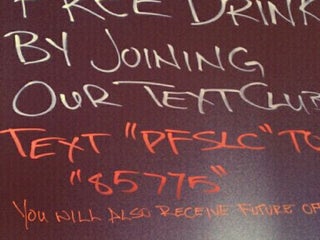 FREE DRINK
BY JOINING
OUR TEXT CLUB
TEXT "PFSLC" TO
"85775"
YOU WILL ALSO RECEIVE FUTURE OF